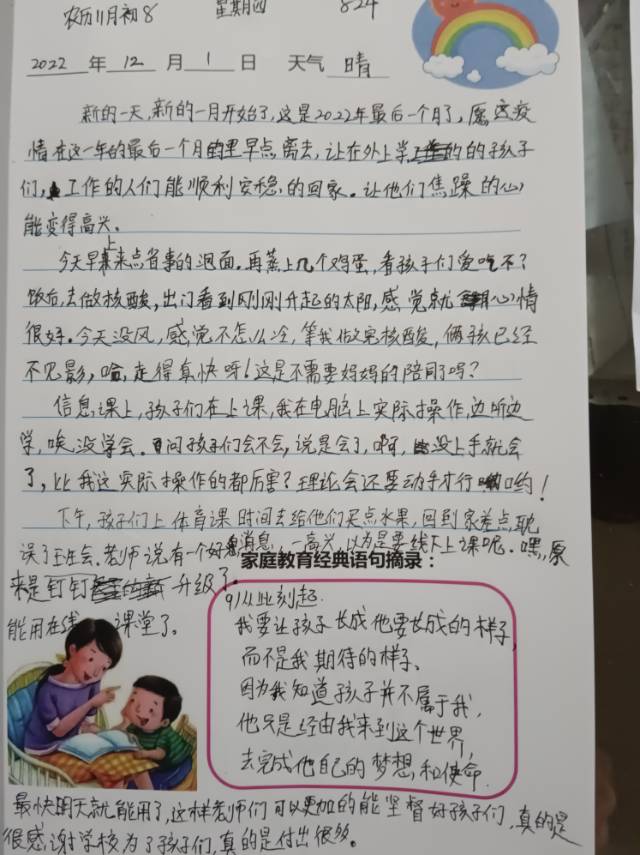 农历11月初8 星期四 824
2022 年 12 月 1 日 天气 晴
新的一天,新的一月开始了,这是2022年最后一个月了,愿这疫
情在这一年的最后一个月里早点离去,让在外上学的的孩子
们,工作的人们能顺利安稳的回家。让他们焦躁的心
能变得高兴。
今天早上来点省事的泡面。再蒸上几个鸡蛋,看孩子们爱吃不?
饭后,去做核酸,出门看到刚刚升起的太阳,感觉就心情
很好。今天没风,感觉不怎么冷,等我做完核酸,俩孩已经
不见影,哈,走得真快呀!这是不需要妈妈的陪同了吗?
信息课上,孩子们在上课,我在电脑上实际操作,边听边
学,唉,没学会。问孩子们会不会,说是会了,啊,没上手就会
了,比我这实际操作的都厉害?理论会还要动手才行哟!
下午,孩子们上体育课时间去给他们买点水果,回到家差点耽
误了班会。老师说有一个好消息,一高兴,以为是要线下上课呢。嘿,原
家庭教育经典语句摘录:
来是钉钉升级了。
能用在线课堂了。
91从此刻起
我要让孩子长成他要长成的样子,
而不是我期待的样子、
因为我知道孩子并不属于我,
他只是经由我来到这个世界,
去完成他自己的梦想和使命.
最快明天就能用了,这样老师们可以更加的能坚督好孩子们,真的是
很感谢学校为了孩子们,真的是付出很多。